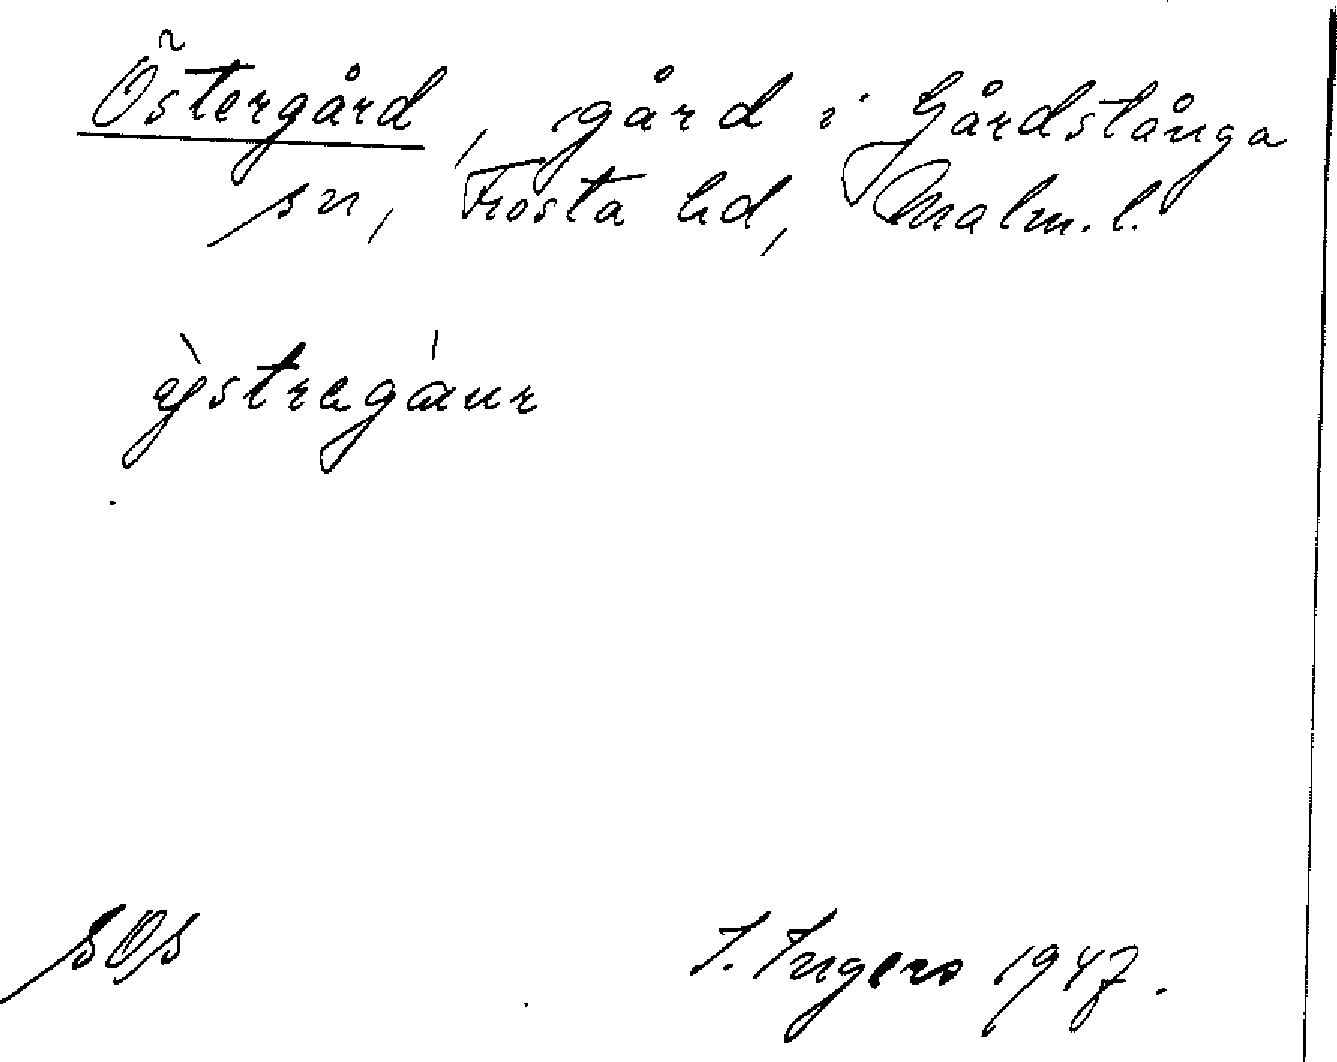 Östergård, gård i Gårdstånga
sn, Frosta hd, Malm. l.
øỳstregáur
SOS
I. Ingers 1947.